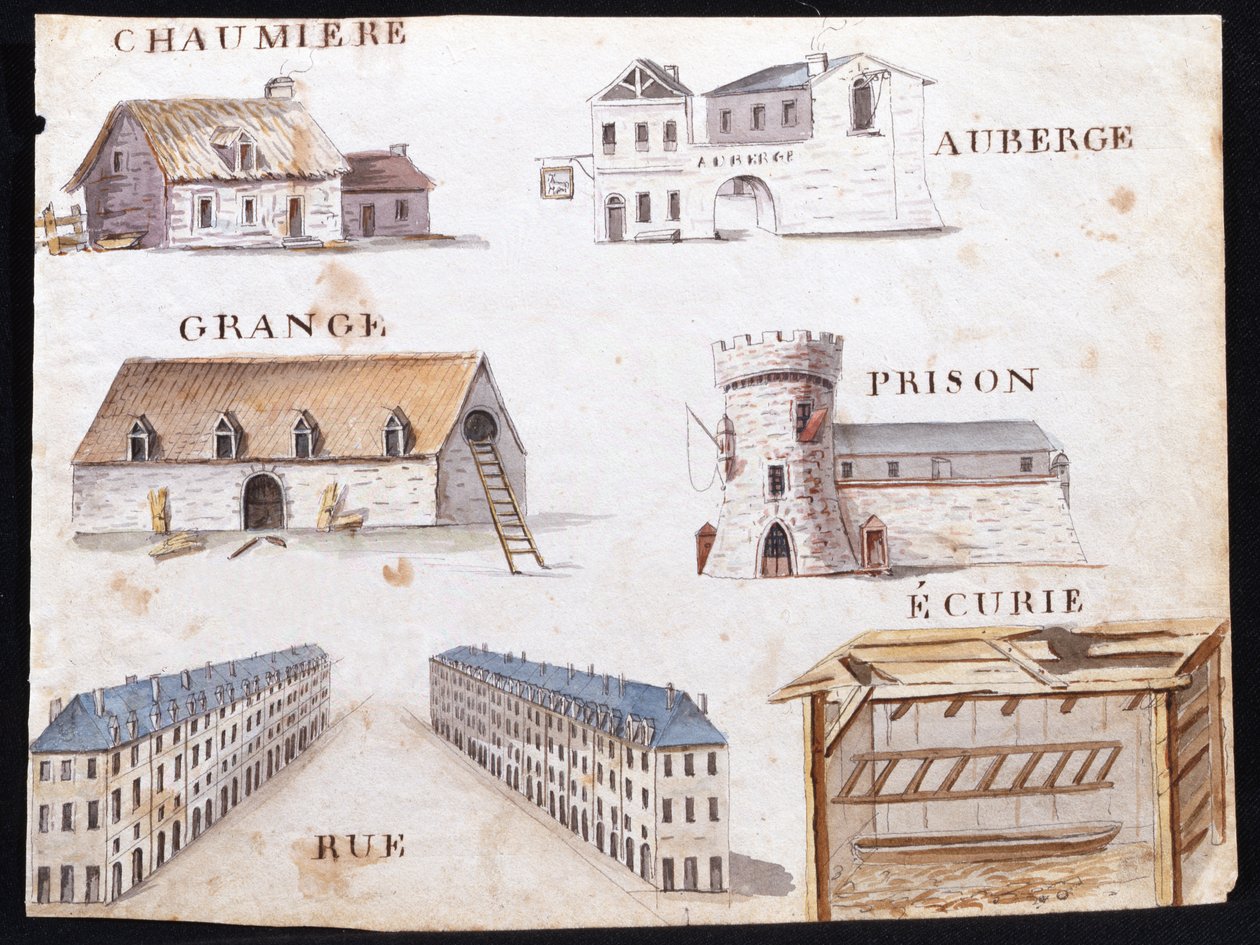 CHAUMIERE
AUBERGE
AUBERGE
GRANGE
PRISON
ÉCURIE
RUE